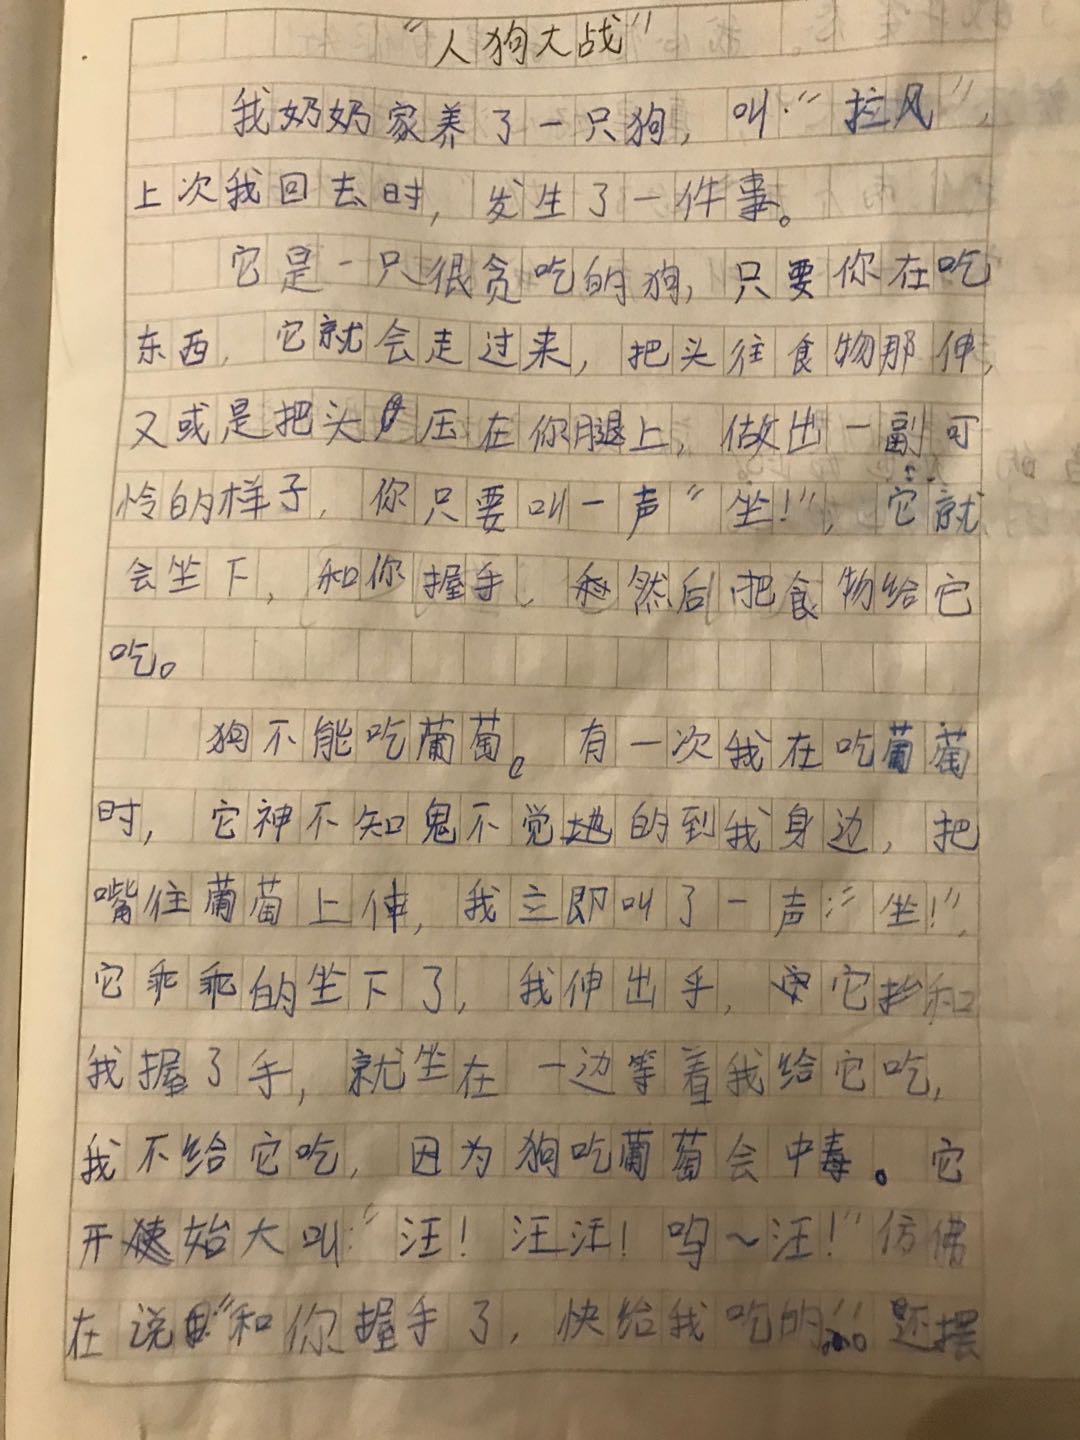 “人狗大战”
我奶奶家养了一只狗，叫“拉风”，
上次我回去时，发生了一件事。
它是一只很贪吃的狗，只要你在吃
东西，它就会走过来，把头往食物那伸，
又或是把头压在你腿上，做出一副可
怜的样子，你只要叫一声“坐！”，它就
会坐下，和你握手，然后把食物给它
吃。
狗不能吃葡萄。有一次我在吃葡萄
时，它神不知鬼不觉地的到我身边，把
嘴往葡萄上伸，我立即叫了一声：“坐！”，
它乖乖的坐下了，我伸出手，它和
我握了手，就坐在一边等着我给它吃，
我不给它吃，因为狗吃葡萄会中毒。它
开始大叫：“汪！汪汪！呜～汪！”仿佛
在说“和你握手了，快给我吃的”。还摆